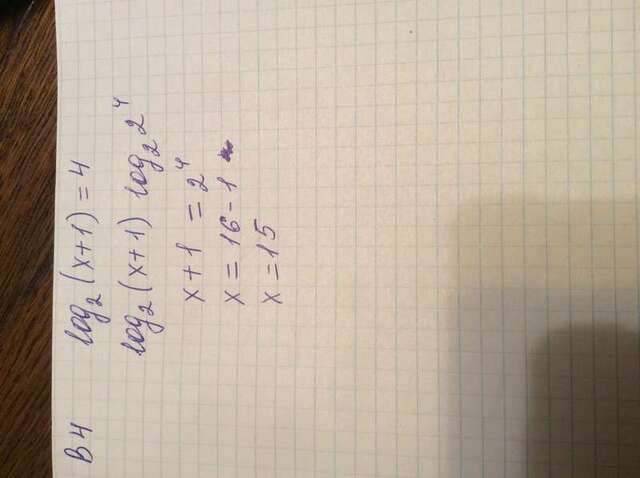 В4 log₂(x+1)=4
log₂(x+1) log₂2⁴
x+1=2⁴
x=16-1
x=15